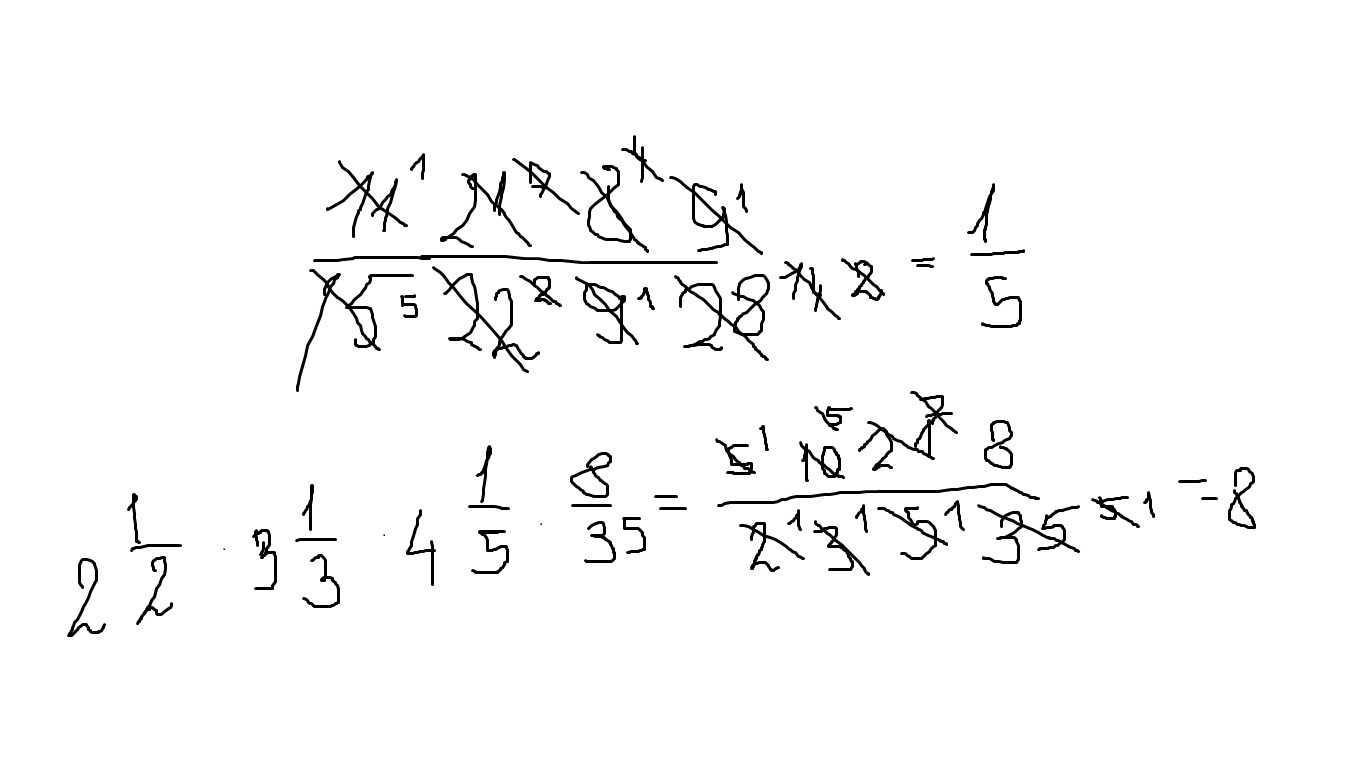 11 ¹ 21 ⁷ 8 ⁴ 9 ¹
15 ⁵ 22 ² 9 ¹ 28 ⁴ ² = 1/5
2 1/2 · 3 1/3 · 4 1/5 · 8/35 = 5 ¹ 10 ⁵ 21 ⁷ 8 / 2 ¹ 3 ¹ 5 ¹ 35 ⁵ ¹ = 8